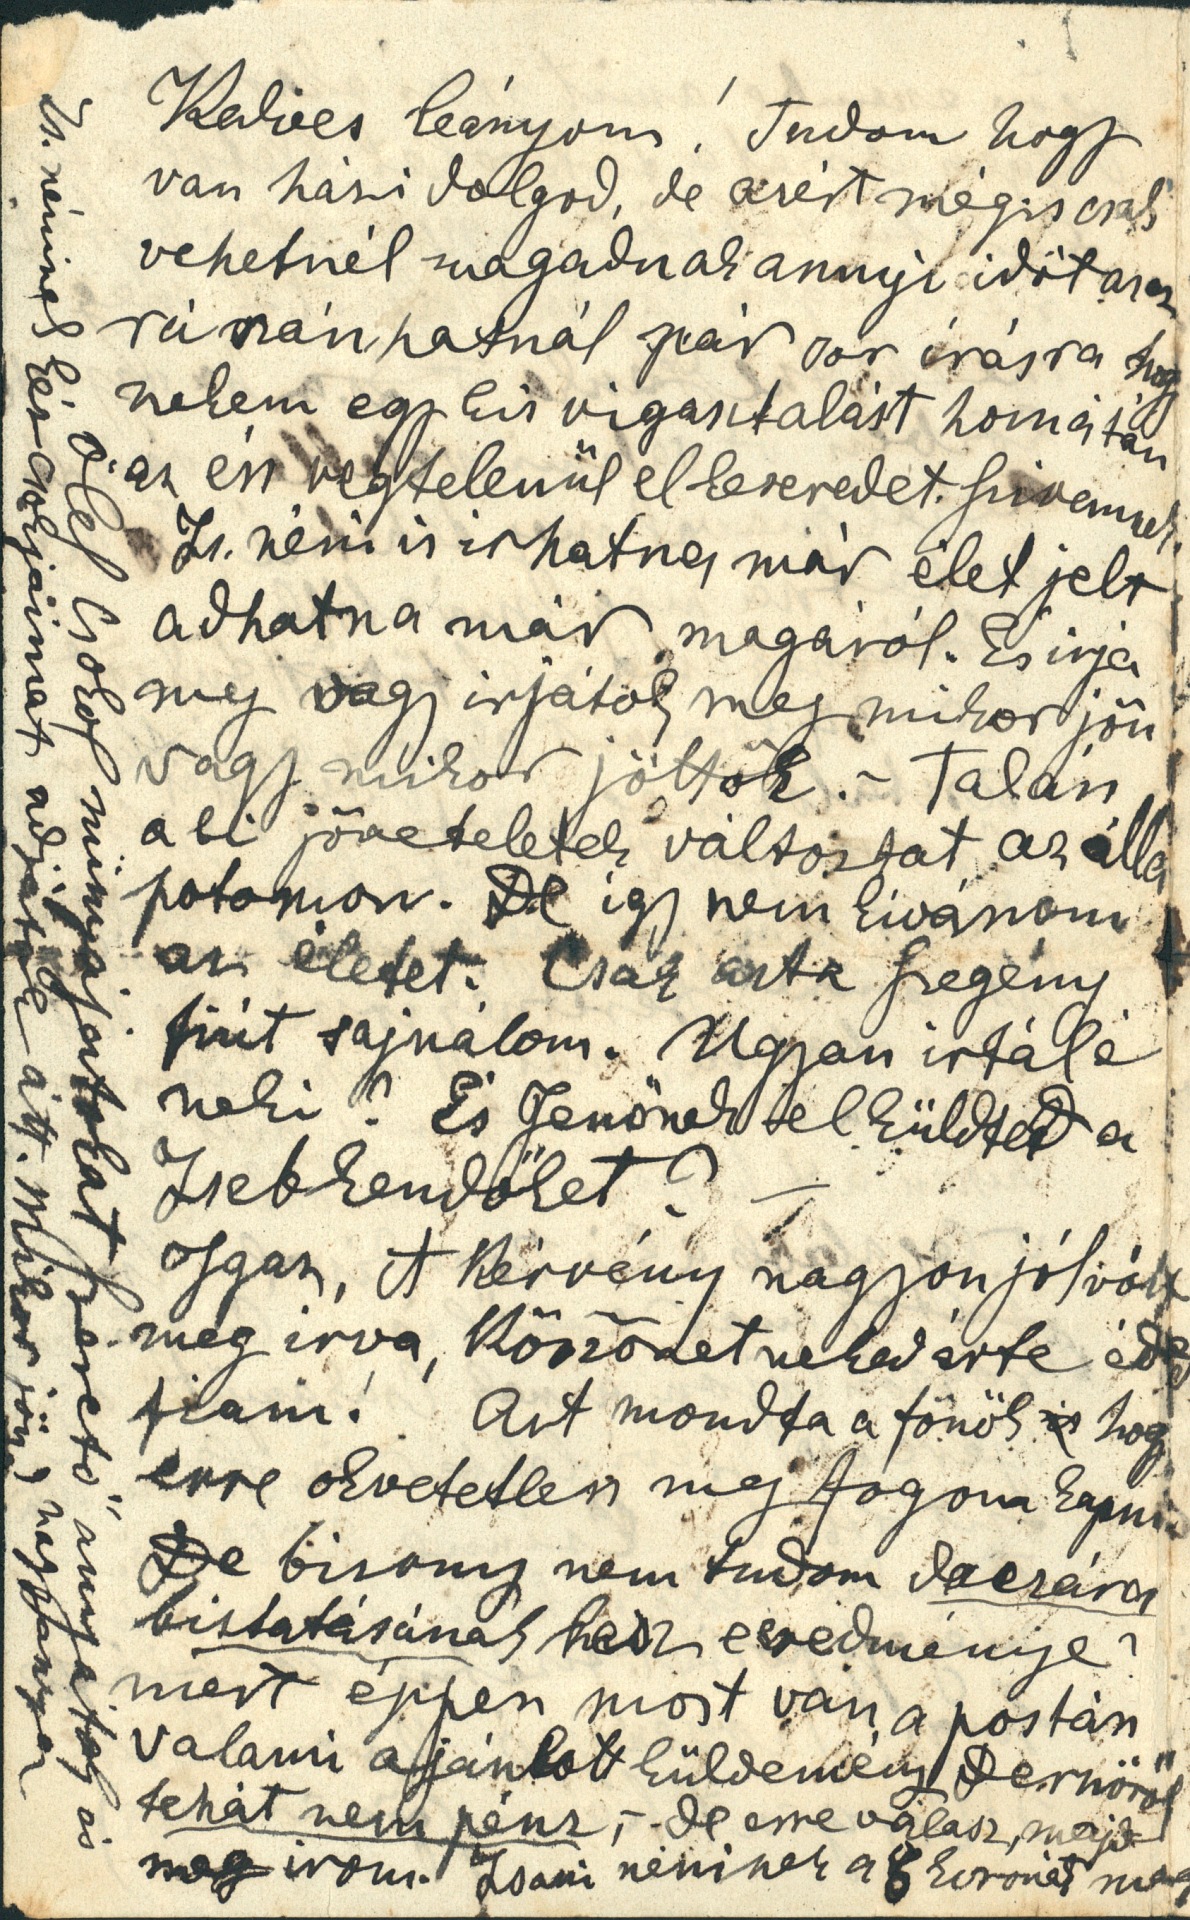 Kedves leányom! Tudom hogy
van házi dolgod, de azért mégis csak
vehetnél magadnak annyi időt
rá szánhatnál pár sor írásra hogy
nekem egy kis vigasztalást hoznátán
az én végtelenül elkeseredet szivemnek.
Zs. néni is irhatna már élet jelt
adhatna már magáról. És irja
meg vagy irjátok meg mikor jön
vagy mikor jöttök. – Talán
a ti jöveteletek változtat az álla
potomon. De igy nem kivánom
az életet. Csak azt a szegény
fiút sajnálom. Ugyan irtál é
neki? És Jenőnek elküldted a
Zsebkendőket? –
Igaz, A Kérvény nagyon jól vólt
meg irva, Köszönet neked érte édes
fiam! Azt mondta a főnök is hogy
erre okvetetlen meg fogom kapni.
De bizony nem tudom daczára
biztatásának lesz eredménye?
mert éppen most van a postán
valami ajánlott küldemény Dernőről
tehát nem pénz, – de erre válasz, majd
meg irom. Zsani néninek a 6 koronát meg
Ölel Csókol mindnyájatokat szerető anyjatok is
Zs. néninek kézcsókjaimat adjátok átt. Mikor jön? nagyanyja